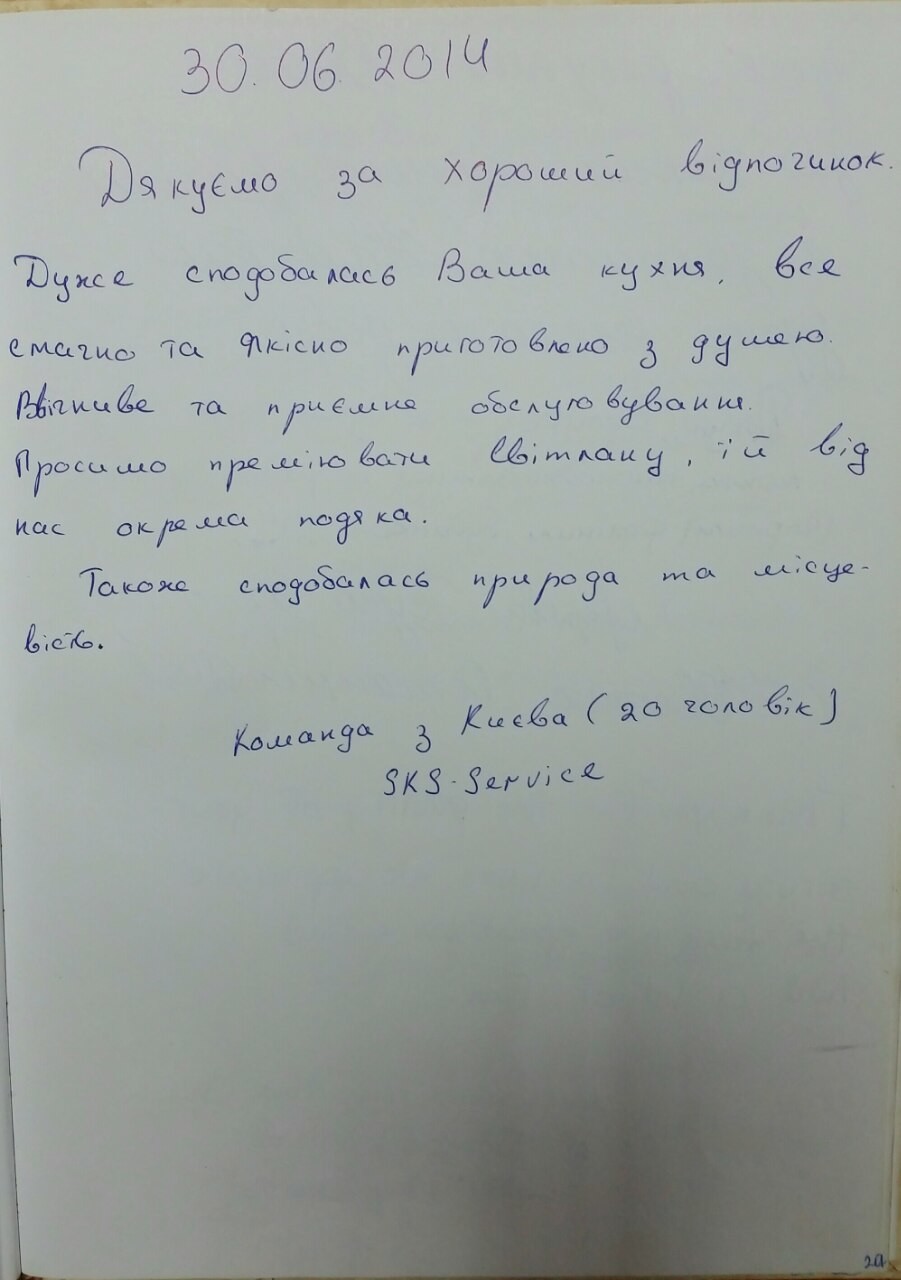 30.06.2014
Дякуємо за хороший відпочинок.
Дуже сподобалась Ваша кухня, все
смачно та якісно приготовлено з душею.
Ввічливе та приємне обслуговування.
Просимо премiювати Світлану, їй від
нас окрема подяка.
Також сподобалась природа та місце-
вість.
Команда з Києва (20 чоловік)
SKS-Service